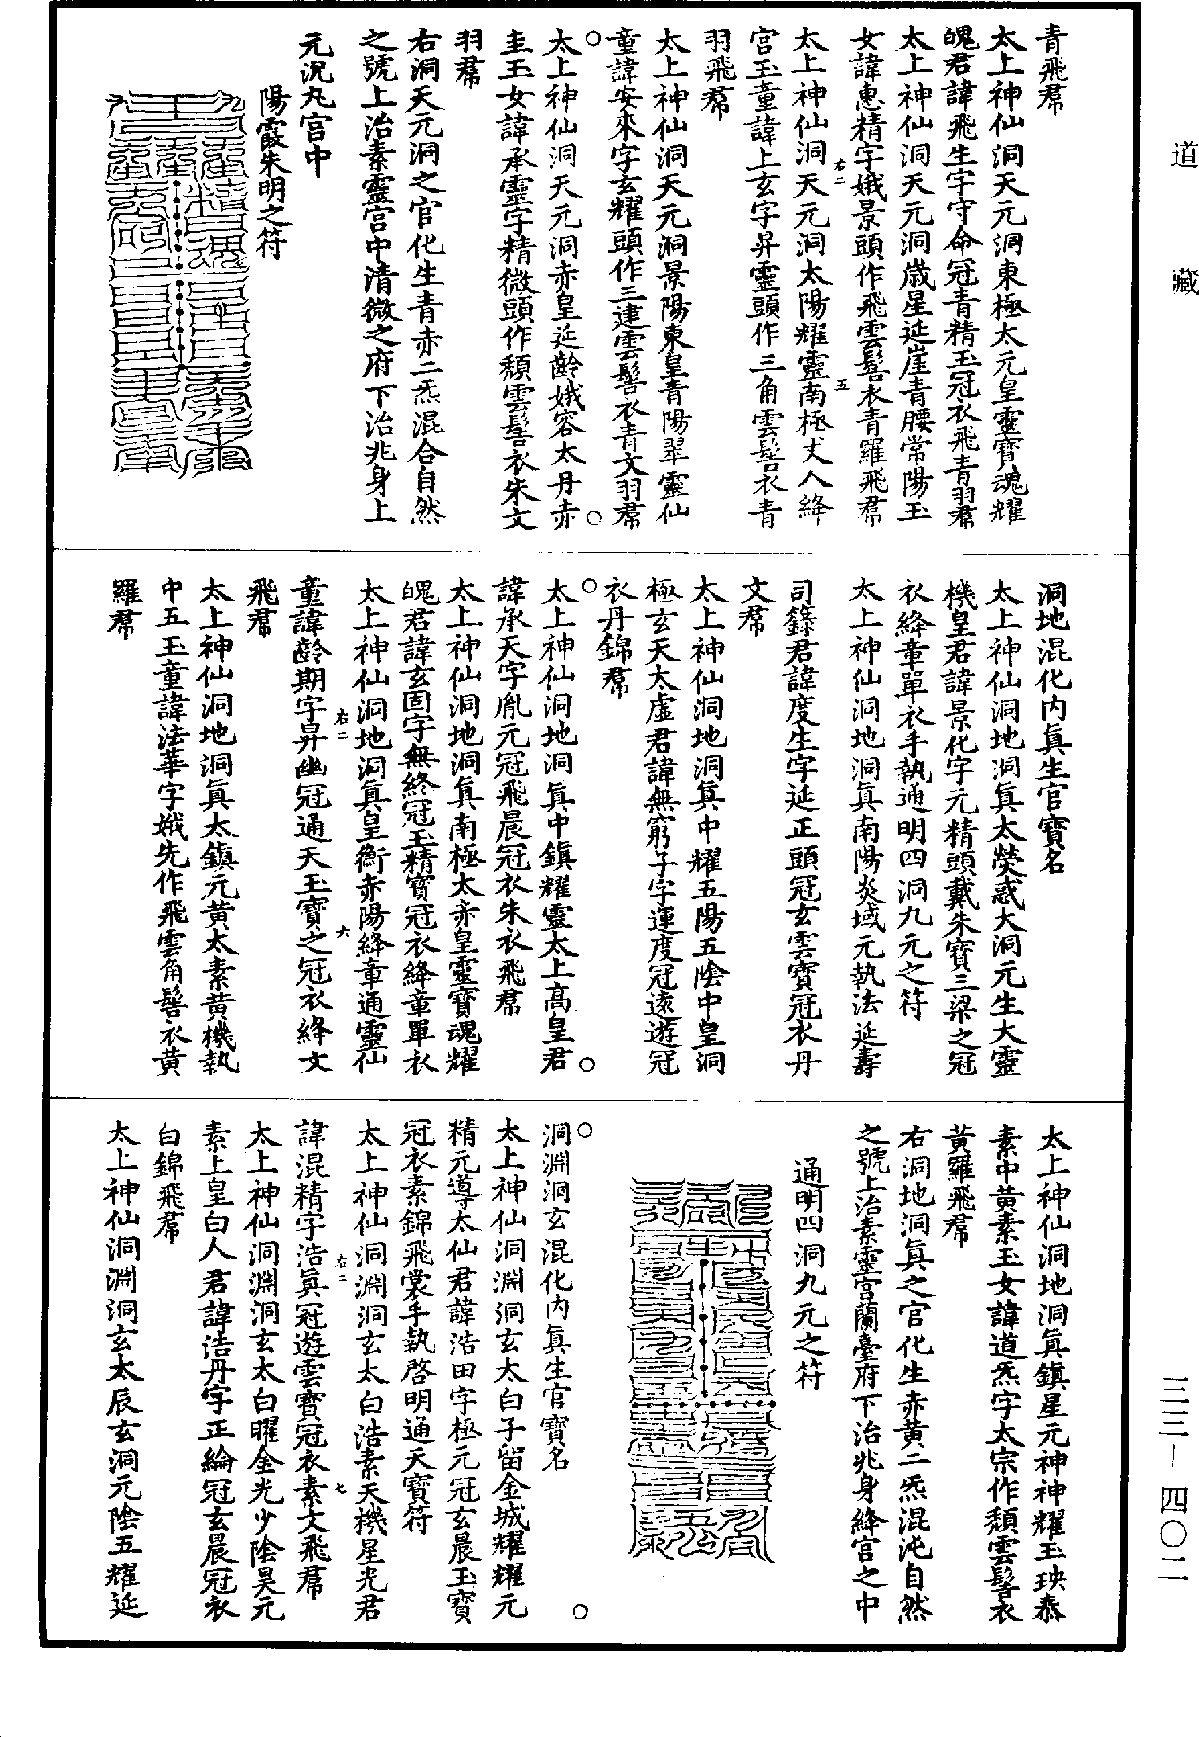 道藏
三三-四〇二
青飛帬
太上神仙洞天元洞東極太元皇靈寶魂耀
魄君諱飛生字守命冠青精玉冠衣飛青羽帬
太上神仙洞天元洞歲星延崖青腰常陽玉
女諱惠精字娥景頭作飛雲髻衣青羅飛帬
太上神仙洞天元洞太陽耀靈南極丈人絳
宮玉童諱上玄字昇靈頭作三角雲髻衣青
羽飛帬
太上神仙洞天元洞景陽東皇青陽翠靈仙
童諱安來字玄耀頭作三建雲髻衣青文羽帬
太上神仙洞天元洞赤皇延齡娥容太丹赤
圭玉女諱承靈字精微頭作頹雲髻衣朱文
羽帬
右洞天元洞之官化生青赤二炁混合自然
之號上治素靈宮中清微之府下治兆身上
元泥丸宮中
陽霞朱明之符
洞地混化內真生官寶名
太上神仙洞地洞真太熒惑大洞元生大靈
機皇君諱景化字元精頭戴朱寶三梁之冠
衣絳章單衣手執通明四洞九元之符
太上神仙洞地洞真南陽炎域元執法延壽
司錄君諱度生字延正頭冠玄雲寶冠衣丹
文帬
太上神仙洞地洞真中耀五陽五陰中皇洞
極玄天太虛君諱無窮子字運度冠遠遊冠
衣丹錦帬
太上神仙洞地洞真中鎮耀靈太上高皇君
諱承天字胤元冠飛晨冠衣朱衣飛帬
太上神仙洞地洞真南極太赤皇靈寶魂耀
魄君諱玄固字無終冠玉精寶冠衣絳章單衣
太上神仙洞地洞真皇衡赤陽絳章通靈仙
童諱齡期字昇幽冠通天玉寶之冠衣絳文
飛帬
太上神仙洞地洞真太鎮元黃太素黃機執
中五玉童諱法華字娥先作飛雲角髻衣黃
羅帬
太上神仙洞地洞真鎮星元神神耀玉玞忝
素中黃素玉女諱道炁字太宗作頹雲髻衣
黃羅飛帬
右洞地洞真之官化生赤黃二炁混沌自然
之號上治素靈宮蘭臺府下治兆身絳宮之中
通明四洞九元之符
洞淵洞玄混化內真生官寶名
太上神仙洞淵洞玄太白子留金城耀耀元
精元導太仙君諱浩田字極元冠玄晨玉寶
冠衣素錦飛裳手執啓明通天寶符
太上神仙洞淵洞玄太白浩素天機星光君
諱混精字浩真冠遊雲寶冠衣素文飛帬
太上神仙洞淵洞玄太白曜金光少陰昊元
素上皇白人君諱浩丹字正綸冠玄晨冠衣
白錦飛帬
太上神仙洞淵洞玄太辰玄洞元陰五耀延
右二
五
右二
六
右二
七